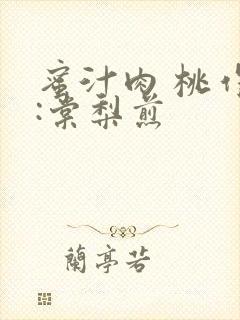 蜜汁肉桃作
:棠梨煎
蘭亭若